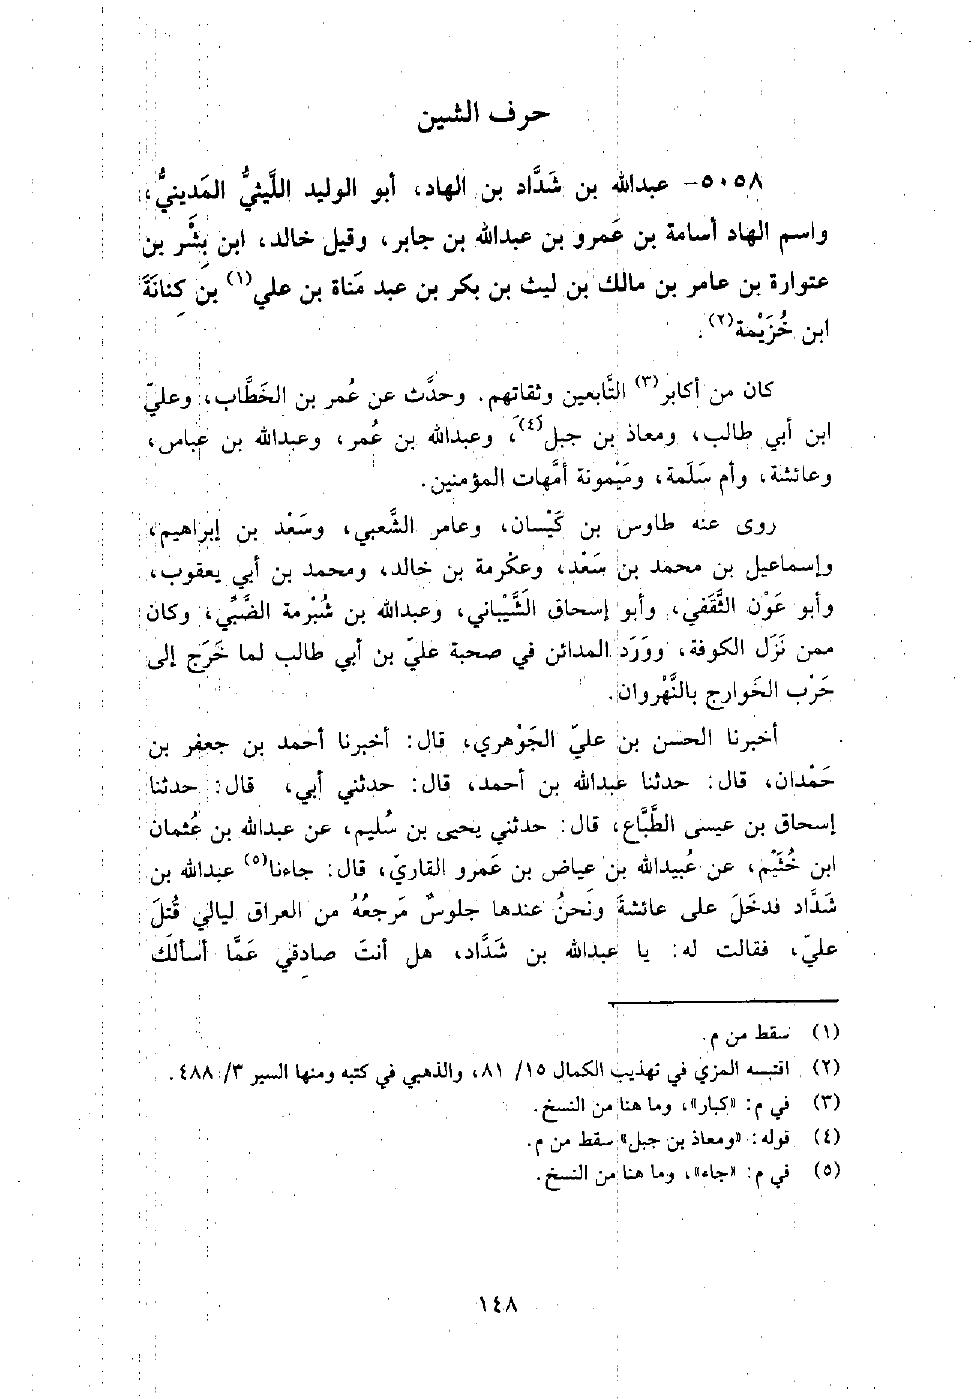 حرف الشين
٥٠٥٨- عبدالله بن شَدَّاد بن الهاد، أبو الوليد اللَّيثيُّ المَدِينيُّ،
واسم الهاد أسامة بن عَمرو بن عبدالله بن جابر، وقيل خالد، ابن بِشْر بن
عتوارة بن عامر بن مالك بن ليث بن بكر بن عبد مَناة بن علي(١) بن كِنانَةَ
ابن خُزَيْمة(٢).
كان من أكابر(٣) التَّابعين وثقاتهم. وحدَّث عن عُمر بن الخَطَّاب، وعليّ
ابن أبي طالب، ومعاذ بن جبل(٤)، وعبدالله بن عُمر، وعبدالله بن عباس،
وعائشة، وأم سَلَمة، ومَيْمونة أمَّهات المؤمنين.
روى عنه طاوس بن كَيْسان، وعامر الشَّعبي، وسَعْد بن إبراهيم،
وإسماعيل بن محمد بن سَعْد، وعكْرمة بن خالد، ومحمد بن أبي يعقوب،
وأبو عَوْن الثَّقَفي، وأبو إسحاق الشَّيْباني، وعبدالله بن شُبْرمة الضَّبِّي، وكان
ممن نَزَل الكوفة، ووَرَد المدائن في صحبة عليّ بن أبي طالب لما خَرَج إلى
حَرْب الخَوارج بالنَّهْروان.
أخبرنا الحسن بن عليّ الجَوْهري، قال: أخبرنا أحمد بن جعفر بن
حَمْدان، قال: حدثنا عبدالله بن أحمد، قال: حدثني أبي، قال: حدثنا
إسحاق بن عيسى الطَّبَّاع، قال: حدثني يحيى بن سُليم، عن عبدالله بن عُثمان
ابن خُثَيْم، عن عُبيدالله بن عياض بن عَمرو القاريّ، قال: جاءنا(٥) عبدالله بن
شَدَّاد فدخَلَ على عائشةَ ونَحنُ عندها جلوسٌ مَرجعُهُ من العراق ليالي قُتلَ
عليّ، فقالت له: يا عبدالله بن شَدَّاد، هل أنتَ صادِقي عَمَّا أسألُكَ
(١) سقط من م.
(٢) اقتبسه المزي في تهذيب الكمال ١٥/ ٨١، والذهبي في كتبه ومنها السير ٣/ ٤٨٨.
(٣) في م: «كبار»، وما هنا من النسخ.
(٤) قوله: «ومعاذ بن جبل» سقط من م.
(٥) في م: «جاء»، وما هنا من النسخ.
١٤٨